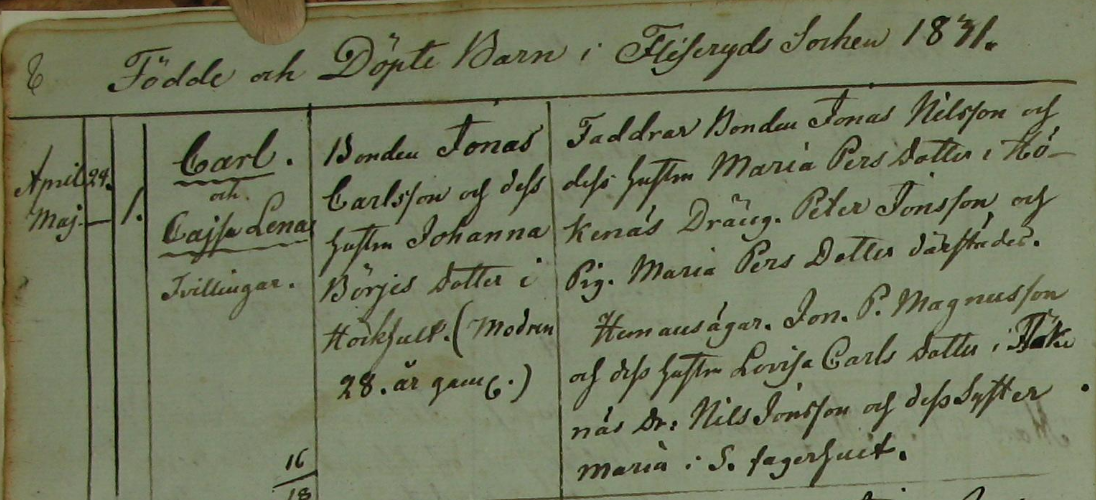 Födde och Döpte Barn i Fliseryds Sochen 1831.
April 29.
Maj. — 1.
Carl.
och
Cajsa Lena
Tvillingar.
Bonden Jonas
Carlsson och dess
hustru Johanna
Börjes Dotter i
Höckhult. (Modren
28. år gam.)
16
18
Faddrar Bonden Jonas Nilsson och
dess hustru Maria Pers Dotter i Hö-
kenäs Dräng. Peter Jonsson och
Pig. Maria Pers Dotter därstädes.
Hemansägar. Jon. P. Magnusson
och dess hustru Lovisa Carls Dotter i Höke
näs Dr: Nils Jonsson och dess Syster
Maria i S. fagerhult.